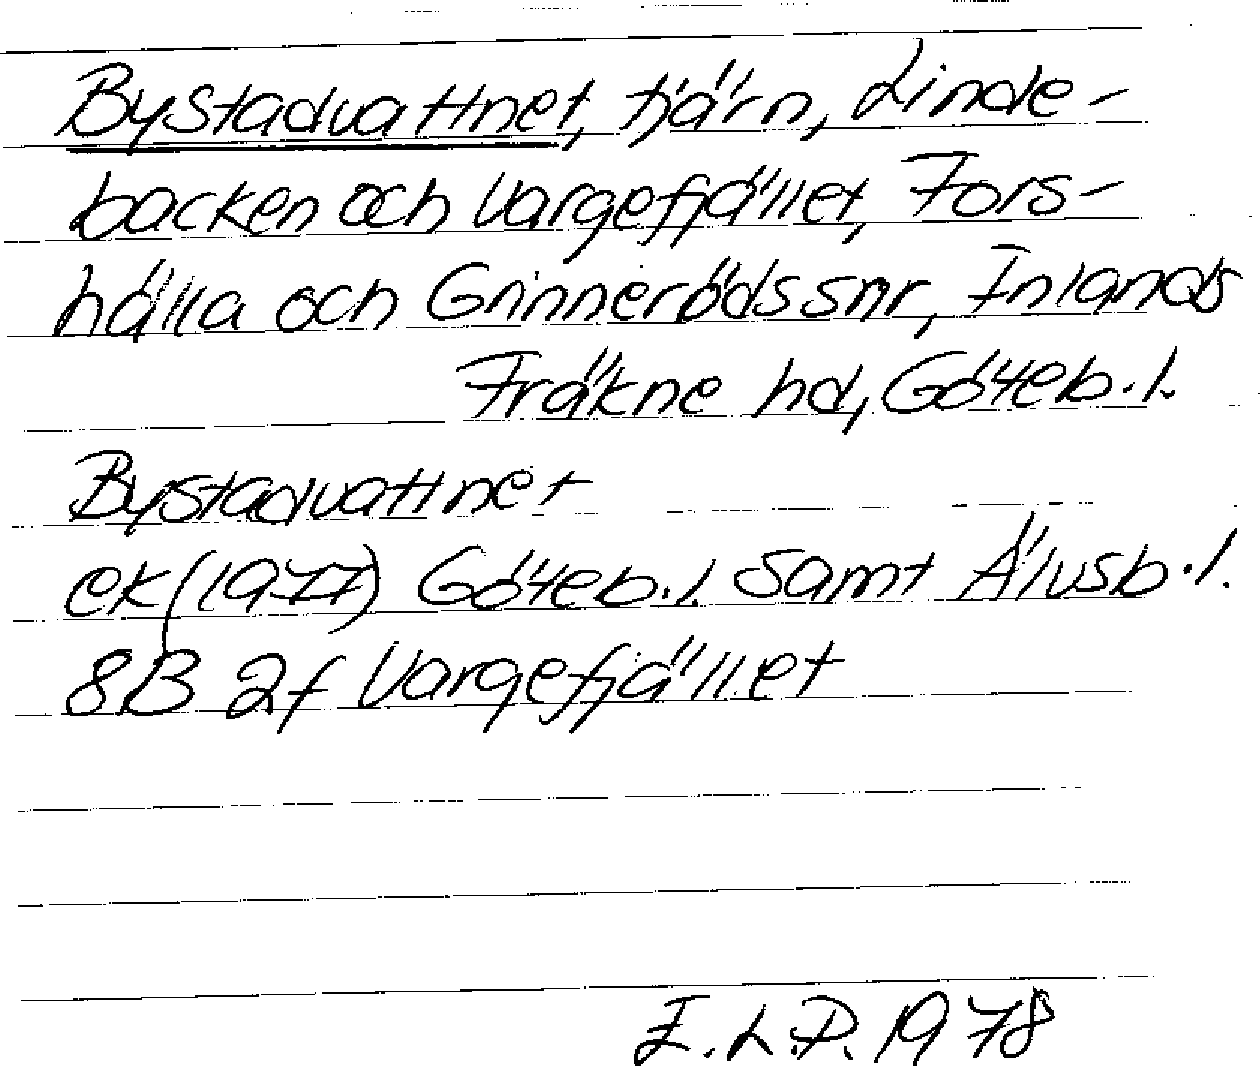 Bystadvattnet, tjärn, Linde-
backen och Vargefjället, Fors-
hälla och Grinnerödssnr, Inlands
Fräkne hd, Göteb.l.
Bystadvattnet
ek (1977) Göteb.l. samt Älvsb.l.
8B 2f Vargefjället
E.L.P. 1978